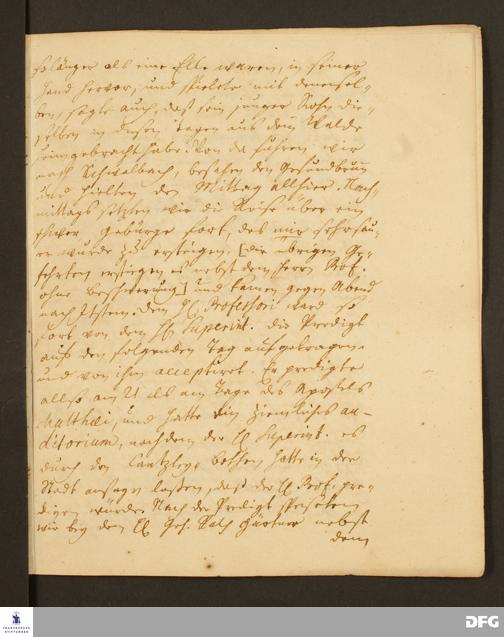 länger als eine Elle waren, in seiner
Hand hervor, und spielete mit densel-
ben, sagte auch, daß sein junger Sohn die-
selben in diesen Tagen aus dem Walde
heimgebracht habe. Von da fuhren wir
nach Schwalbach, besahen den Gesundbrunn
und hielten den Mittag allhier. Nach-
mittags setzten wir die Reise über ein
schwer Gebürge fort, das mir sehr sau-
er wurde zu ersteigen. [die übrigen Ge-
fehrten erstiegen es nebst dem Herrn Prof.
ohne Beschwerung] und kamen gegen Abend
nach Itstein. Dem H. Professori ward so
fort von dem H. Superint. die Predigt
auf den folgenden Tag aufgetragen
und von ihm acceptiret. Er predigte
also am 21 als am Tage des Apostels
Matthaei, und hatte ein ziemliches au-
ditorium, nachdem der H. Superint. es
durch den Cantzley hatte in der
Stadt ansagen lassen, daß der H. Prof. pre-
digen würde. Nach der Predigt speiseten
wir bey dem H. Geh. Rath Gärtner nebst
dem
FRANCKESCHE
STIFTUNGEN
DFG